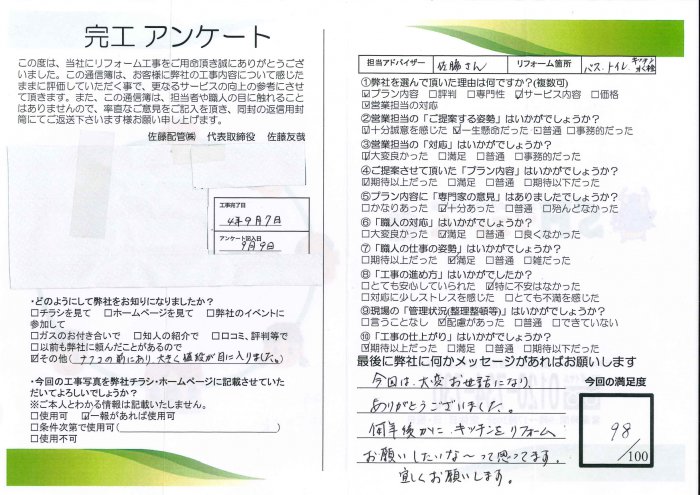 完工 アンケート
この度は、当社にリフォーム工事をご用命頂き誠にありがとうござ
いました。この通信簿は、お客様に弊社の工事内容について感じた
ままに評価していただく事で、更なるサービスの向上の参考にさせ
て頂きます。また、この通信簿は、担当者や職人の目に触れること
はありませんので、率直なご意見をご記入を頂き、同封の返信用封
筒にてご返送下さいます様お願い申し上げます。
佐藤配管㈱ 代表取締役 佐藤友哉
工事完了日
4年9月7日
アンケート記入日
9月9日
・どのようにして弊社をお知りになりましたか？
□チラシを見て □ホームページを見て □弊社のイベントに
参加して
□ガスのお付き合いで □知人の紹介で □口コミ、評判等で
□以前も弊社に頼んだことがあるので
☑その他( ナフコの前にあり、大きく値段が目に入りました。)
・今回の工事写真を弊社チラシ・ホームページに記載させていた
だいてよろしいでしょうか？
※ご本人とわかる情報は記載いたしません。
□使用可 ☑一報があれば使用可
□条件次第で使用可( )
□使用不可
担当アドバイザー 佐藤さん リフォーム箇所 バス、トイレ、キッチン
①弊社を選んで頂いた理由は何ですか？(複数可)
☑プラン内容 □評判 □専門性 ☑サービス内容 □価格
☑営業担当の対応
②営業担当の「ご提案する姿勢」はいかがでしょうか？
☑十分誠意を感じた ☑一生懸命だった □普通 □事務的だった
③営業担当の「対応」はいかがでしょうか？
☑大変良かった □満足 □普通 □事務的だった
④ご提案させて頂いた「プラン内容」はいかがでしょうか？
☑期待以上だった □満足 □普通 □期待以下だった
⑤プラン内容に「専門家の意見」はありましたでしょうか？
□かなりあった ☑十分あった □普通 □殆んどなかった
⑥「職人の対応」はいかがでしょうか？
□大変良かった ☑満足 □普通 □良くなかった
⑦「職人の仕事の姿勢」はいかがでしょうか？
□期待以上だった ☑満足 □普通 □雑だった
⑧「工事の進め方」はいかがでしたか？
□とても安心していられた ☑特に不安はなかった
□対応に少しストレスを感じた □とても不満を感じた
⑨現場の「管理状況(整理整頓等)」はいかがでしょうか？
□言うことなし ☑配慮があった □普通 □できていない
⑩「工事の仕上がり」はいかがでしょうか？
☑期待以上だった □満足 □普通 □期待以下だった
最後に弊社に何かメッセージがあればお願いします
今回は大変お世話になり、
ありがとうございました。
何年後かに キッチンをリフォーム
お願いしたいな〜って思ってます。
宜しくお願いします。
今回の満足度
98
/100